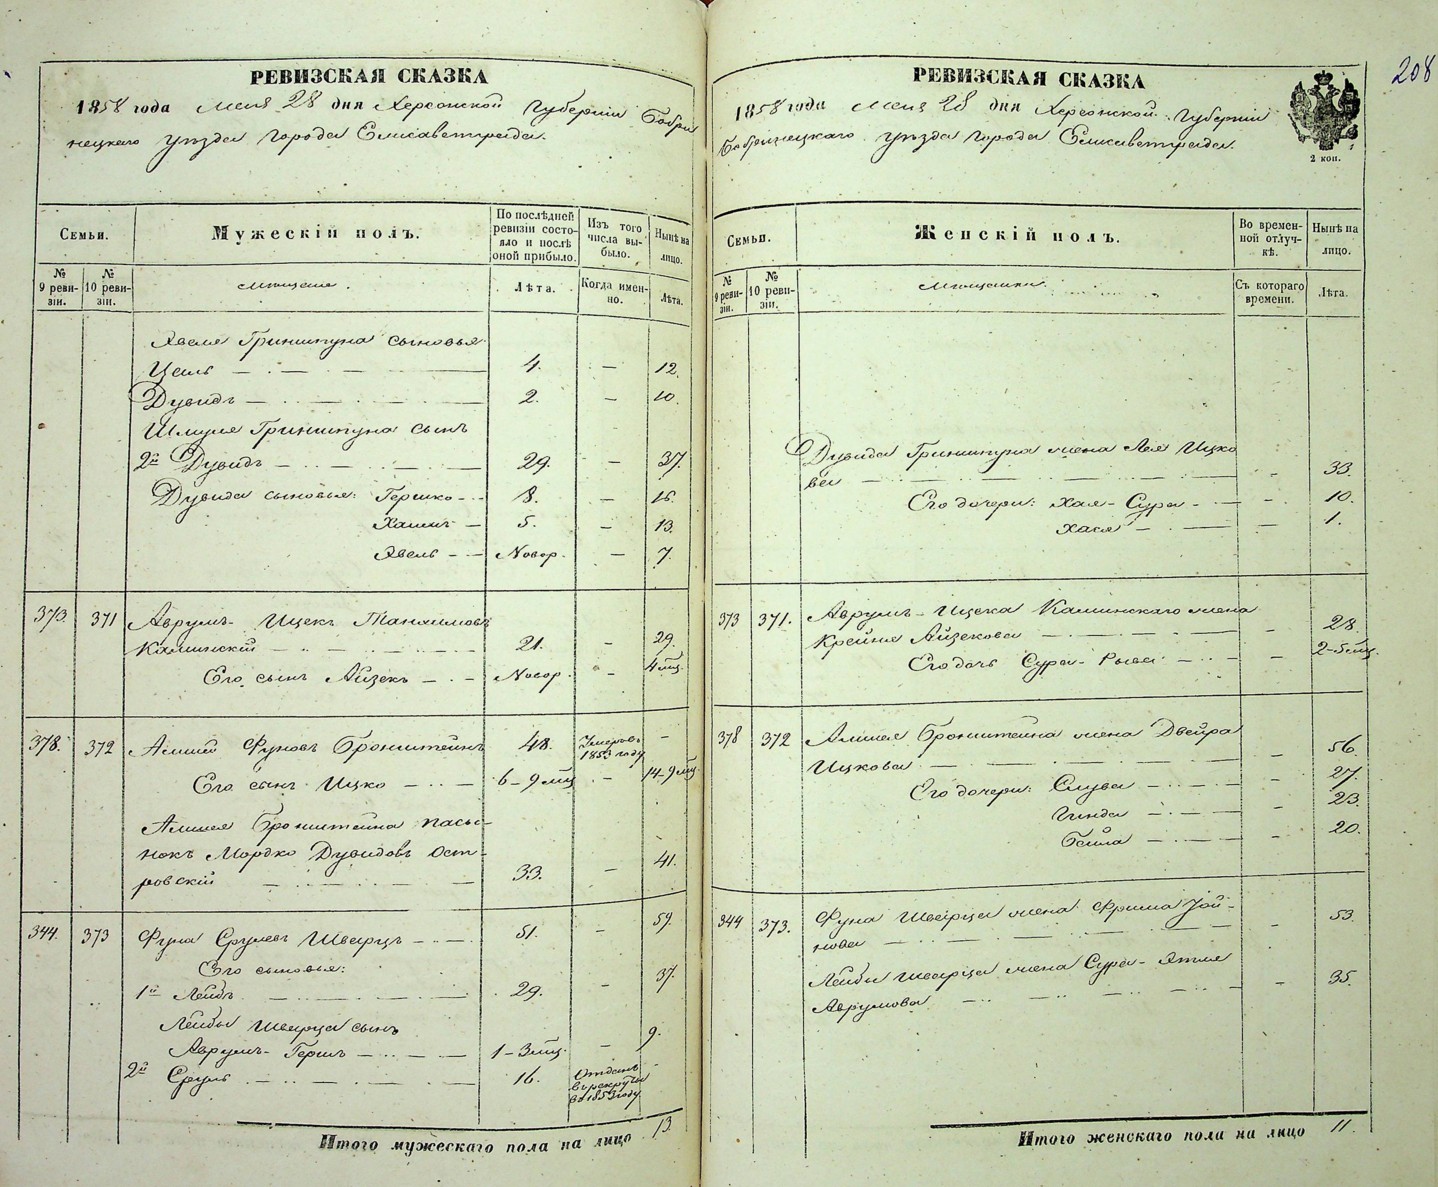 208
РЕВИЗСКАЯ СКАЗКА
1858 года Мая 28 дня Херсонской Губернiи Бобри
нецкаго уѣзда Города Елисаветграда.
Семьи.
Мужескiй полъ.
По послѣдней ревизiи состояло и послѣ оной прибыло.
Изъ того числа выбыло.
Нынѣ на лицо.
№ 9 ревизiи.
№ 10 ревизiи.
Мѣщане.
Лѣта.
Когда именно.
Лѣта.
Явеля Гриншпуна сыновья
Цаль — 4. — 12.
Дувидъ — 2. — 10.
Шмуля Гриншпуна сынъ
2й Дувидъ — 29. — 37.
Дувида сыновья: Гершко — 8. — 16.
Хаимъ — 5. — 13.
Явель — Новор. — 7.
373. 371 Аврумъ-Ицекъ Танхимовъ
Каминскiй — 21. — 29.
Его сынъ Айзекъ — Новор. — 4 мѣц.
378. 372 Фуковъ Бронштейнъ 48. Умеръ въ 1853 году —
Его сынъ Ицко — 6-9 мѣц. — 14-9 мѣц.
Бронштейна пасы-
нокъ Мордко Дувидовъ Ост-
ровскiй — 33. — 41.
344. 373 Фука Срулевъ Шварцъ — 51. — 59.
Его сыновья:
1й Лейбъ — 29. — 37.
Лейбы Шварца сынъ
Аврумъ-Гершъ — 1-3 мѣц. — 9.
2й Сруль — 16. Отданъ въ рекруты въ 1853 году —
Итого мужескаго пола на лицо 13.
РЕВИЗСКАЯ СКАЗКА
1858 года Мая 28 дня Херсонской Губернiи
Бобринецкаго уѣзда Города Елисаветграда.
2 коп.
Семьи.
Женскiй полъ.
Во временной отлучкѣ.
Нынѣ на лицо.
№ 9 ревизiи.
№ 10 ревизiи.
Мѣщанки.
Съ котораго времени.
Лѣта.
Дувида Гриншпуна жена Лея Ицко
ва — — 33.
Его дочери: Хая-Сура — — 10.
Хася — — 1.
373 371. Аврумъ-Ицека Каминскаго жена
Крейня Айзекова — — 28.
Его дочь Сура-Рыва — — 2-5 мѣц.
378 372 Бронштейна жена Двейра
Ицкова — — 56.
Его дочери: Слува — — 27.
Гинда — — 23.
Бейла — — 20.
344 373. Фука Шварца жена Фрима Іой-
нова — — 53.
Лейбы Шварца жена Сура-
Аврумова — — 35.
Итого женскаго пола на лицо 11.